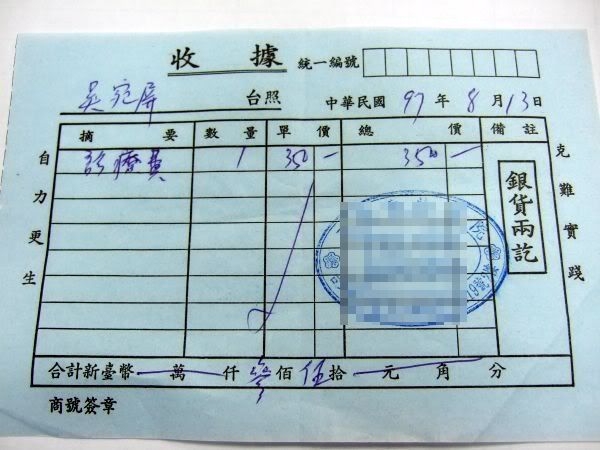 收據 統一編號
吳宛屏 台照 中華民國 97 年 8 月 13 日
摘要 數量 單價 總價 備註
診療費 1 350- 350-
銀貨兩訖
自力更生
克難實踐
合計新臺幣 萬 仟 參 佰 伍 拾 元 角 分
商號簽章